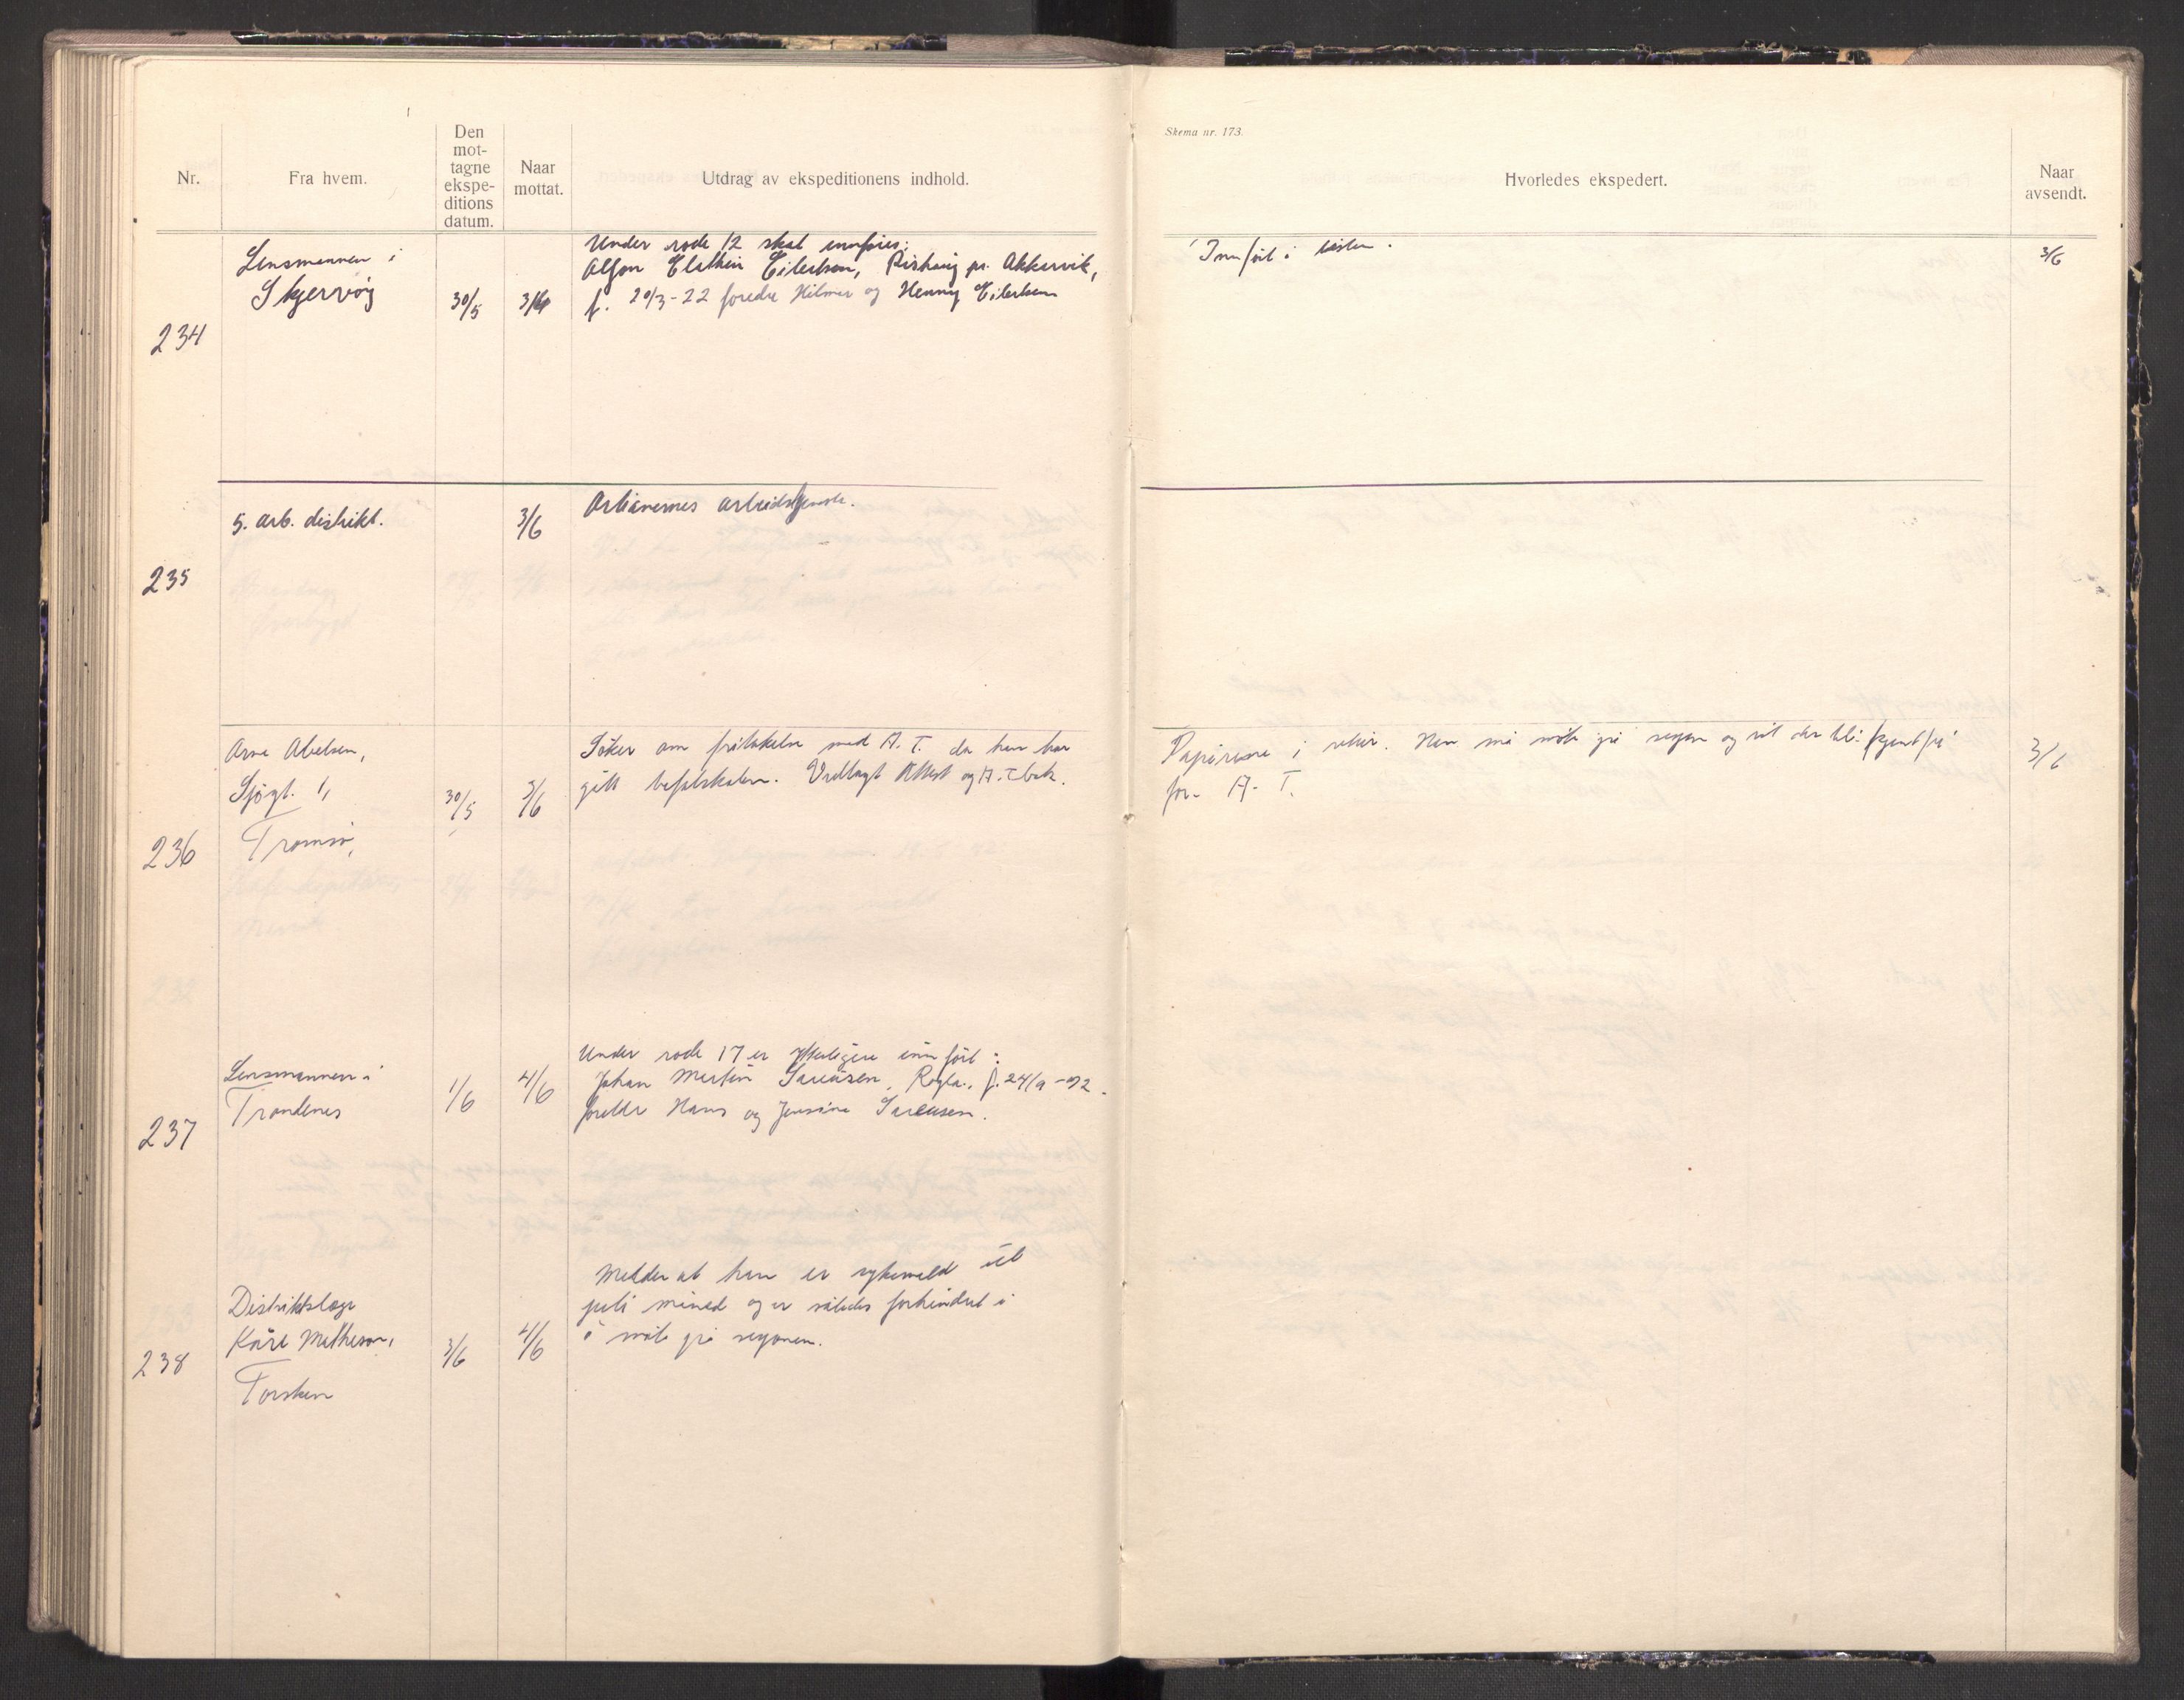 Nr.
Fra hvem.
Den
mot-
tagne
ekspe-
ditions
datum.
Naar
mottat.
Utdrag av ekspeditionens indhold.
Skema nr. 173.
Hvorledes ekspedert.
Naar
avsendt.
234
Lensmannen i
Skjervøy
30/5
3/6
Under rode 12 skal innføres:
Alfon Eilertsen, pr. Akkarvik,
f. 20/3-22 foredre Hilmar og Henny Eilertsen
Innført i listen.
3/6
235
5. arb. distrikt.
3/6
Artianernes arbeidstjeneste.
236
Arne Abelsen,
Sjøgt. 1,
Tromsø,
30/5
3/6
Søker om fritakelse med A. T. da han har
gått befalskolen. Vedlagt Attest og A. T bok.
Papirene i retur. Han må møte på sesjon og vil der bli
for A. T.
3/6
237
Lensmannen i
Trondenes
1/6
4/6
Under rode 17 er ytterligere innført:
Johan Martin f. 24/9
foreldre Hans og
238
Distriktslege
Kåre Matheson,
Torsken
3/6
4/6
Melder at han er sykemeld til
juli måned og er således forhindret i
å møte på sesjonen.